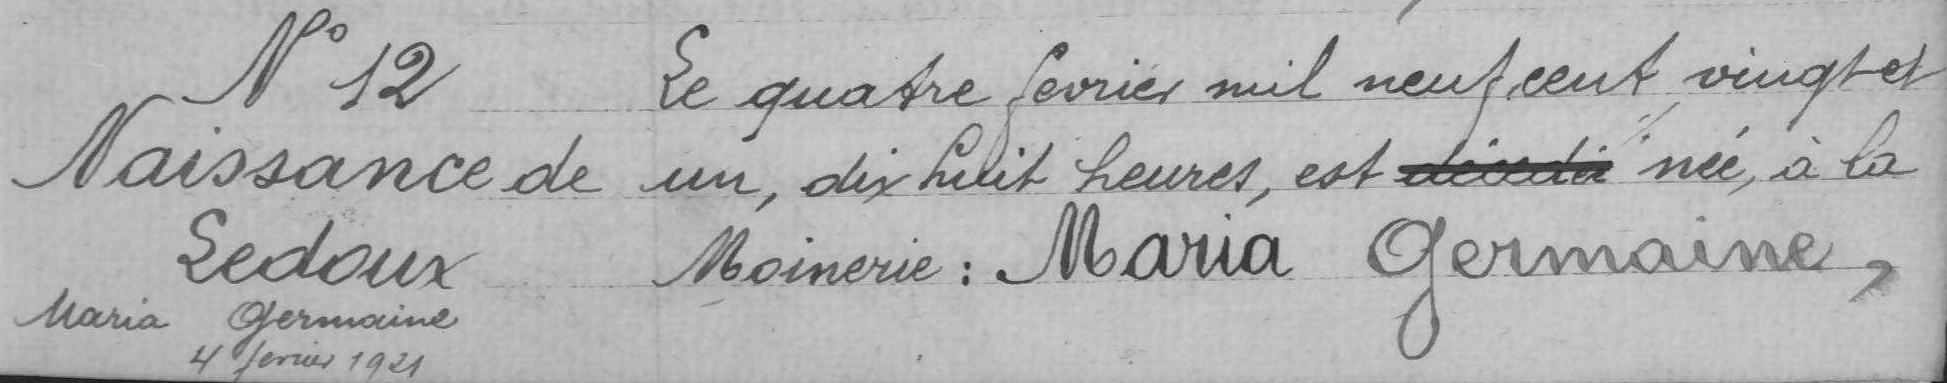 N° 12
Naissance de
Ledoux
Maria Germaine
4 fevrier 1921
Le quatre fevrier mil neuf cent vingt et
un, dix huit heures, est décédé née, à la
Moinerie : Maria Germaine,